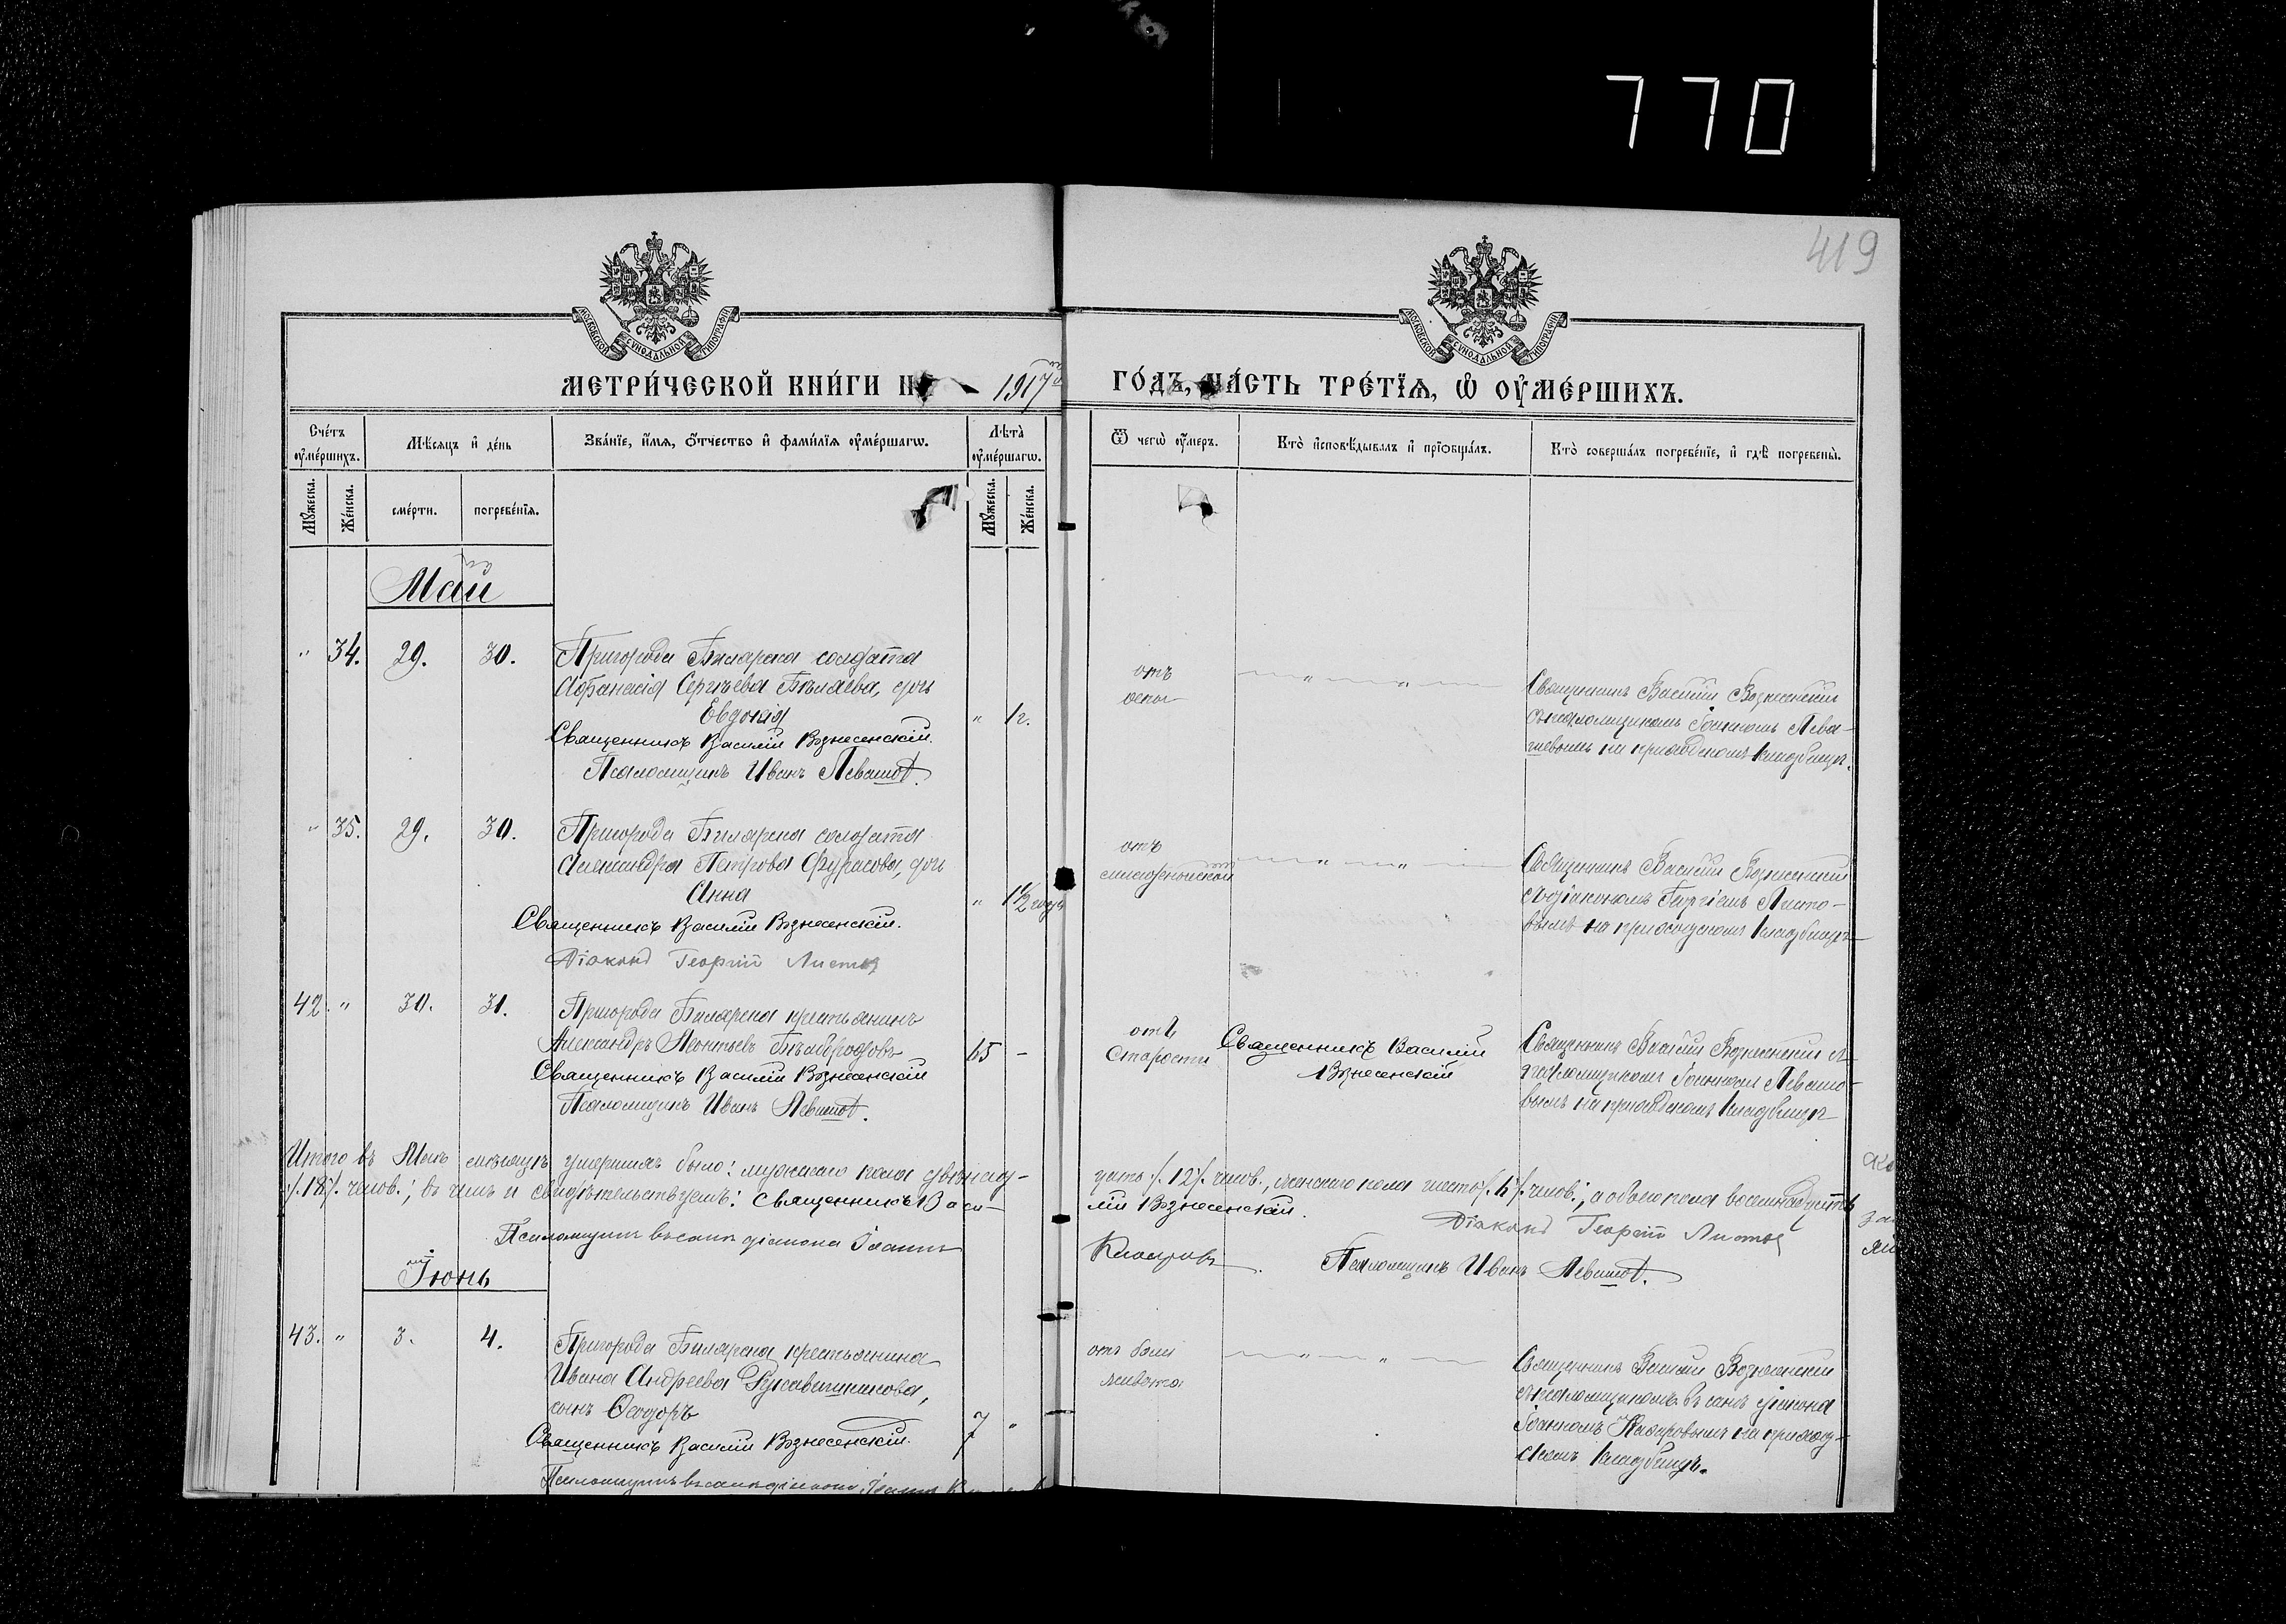 770
419
МОСКОВСКОЙ СѴНОДАЛЬНОЙ ТИПОГРАФІИ
МОСКОВСКОЙ СѴНОДАЛЬНОЙ ТИПОГРАФІИ
МЕТРИ́ЧЕСКОЙ КНИ́ГИ НА 1917й ГО́ДЪ, ЧА́СТЬ ТРЕ́ТЇѦ, Ѡ҆ ОУ҆МЕ́РШИХЪ.
Сче́тъ оу҆ме́ршихъ.
Мꙋ́жеска.
Же́нска.
Мѣ́сяцъ и҆ де́нь
сме́рти.
погребе́нїѧ.
Зва́нїе, и҆́мѧ, ѻ҆́тчество и҆ фами́лїѧ оу҆ме́ршагѡ.
Лѣ́та оу҆ме́ршагѡ.
Мꙋ́жеска.
Же́нска.
Ѿ чегѡ̀ оу҆́меръ.
Кто̀ и҆сповѣ́дывалъ и҆ прїѻбща́лъ.
Кто̀ соверша́лъ погребе́нїе, и҆ гдѣ̀ погребены̀.
Май
" 34. 29. 30. Пригорода Билярска солдата
Афанасія Сергѣева Бѣляева, дочь
Евдокія " 1 г.
Священникъ Василій Вознесенскій.
Псаломщикъ Иванъ Левашов.
отъ
оспы
Священникъ Василій Вознесенскій
съ псаломщикомъ Іоанномъ Лева-
шевымъ на приходскомъ кладбищѣ.
" 35. 29. 30. Пригорода Билярска солдата
Александра Петрова Фурасова, дочь
Анна " 1 1/2 года
Священникъ Василій Вознесенскій.
Діаконъ Георгій Листов
отъ
младенческой
Священникъ Василій Вознесенскій
съ діакономъ Георгіемъ Листо-
вымъ на приходскомъ кладбищѣ
42. " 30. 31. Пригорода Билярска крестьянинъ
Александръ Леонтьевъ Бѣлобородовъ 65 -
Священникъ Василій Вознесенскій
Псаломщикъ Иванъ Левашов.
отъ
Старости
Священникъ Василій
Вознесенскій
Священникъ Василій Вознесенскій съ
псаломщикомъ Іоанномъ Левашо-
вымъ на приходскомъ кладбищѣ
Итого въ Маѣ мѣсяцѣ умершихъ было: мужскаго пола двѣнад-
цать /.12/. челов., женскаго пола шесть /.6/. челов.; а обоего пола восемнадцать
/.18/. челов.; въ чемъ и свидѣтельствуемъ: Священникъ Васи-
лій Вознесенскій.
Діаконъ Георгій Листов
Псаломщикъ въ санѣ діакона Іоаннъ
Псаломщикъ Иванъ Левашов.
Іюнь
43. " 3. 4. Пригорода Билярска крестьянина
Ивана Андреева Рукавишникова,
сынъ Ѳеодоръ 7 "
Священникъ Василій Вознесенскій.
Псаломщикъ въ санѣ діакона Іоаннъ
отъ боли
живота
Священникъ Василій Вознесенскій
съ псаломщикомъ въ санѣ діакона
Іоанномъ на приход-
скомъ кладбищѣ.